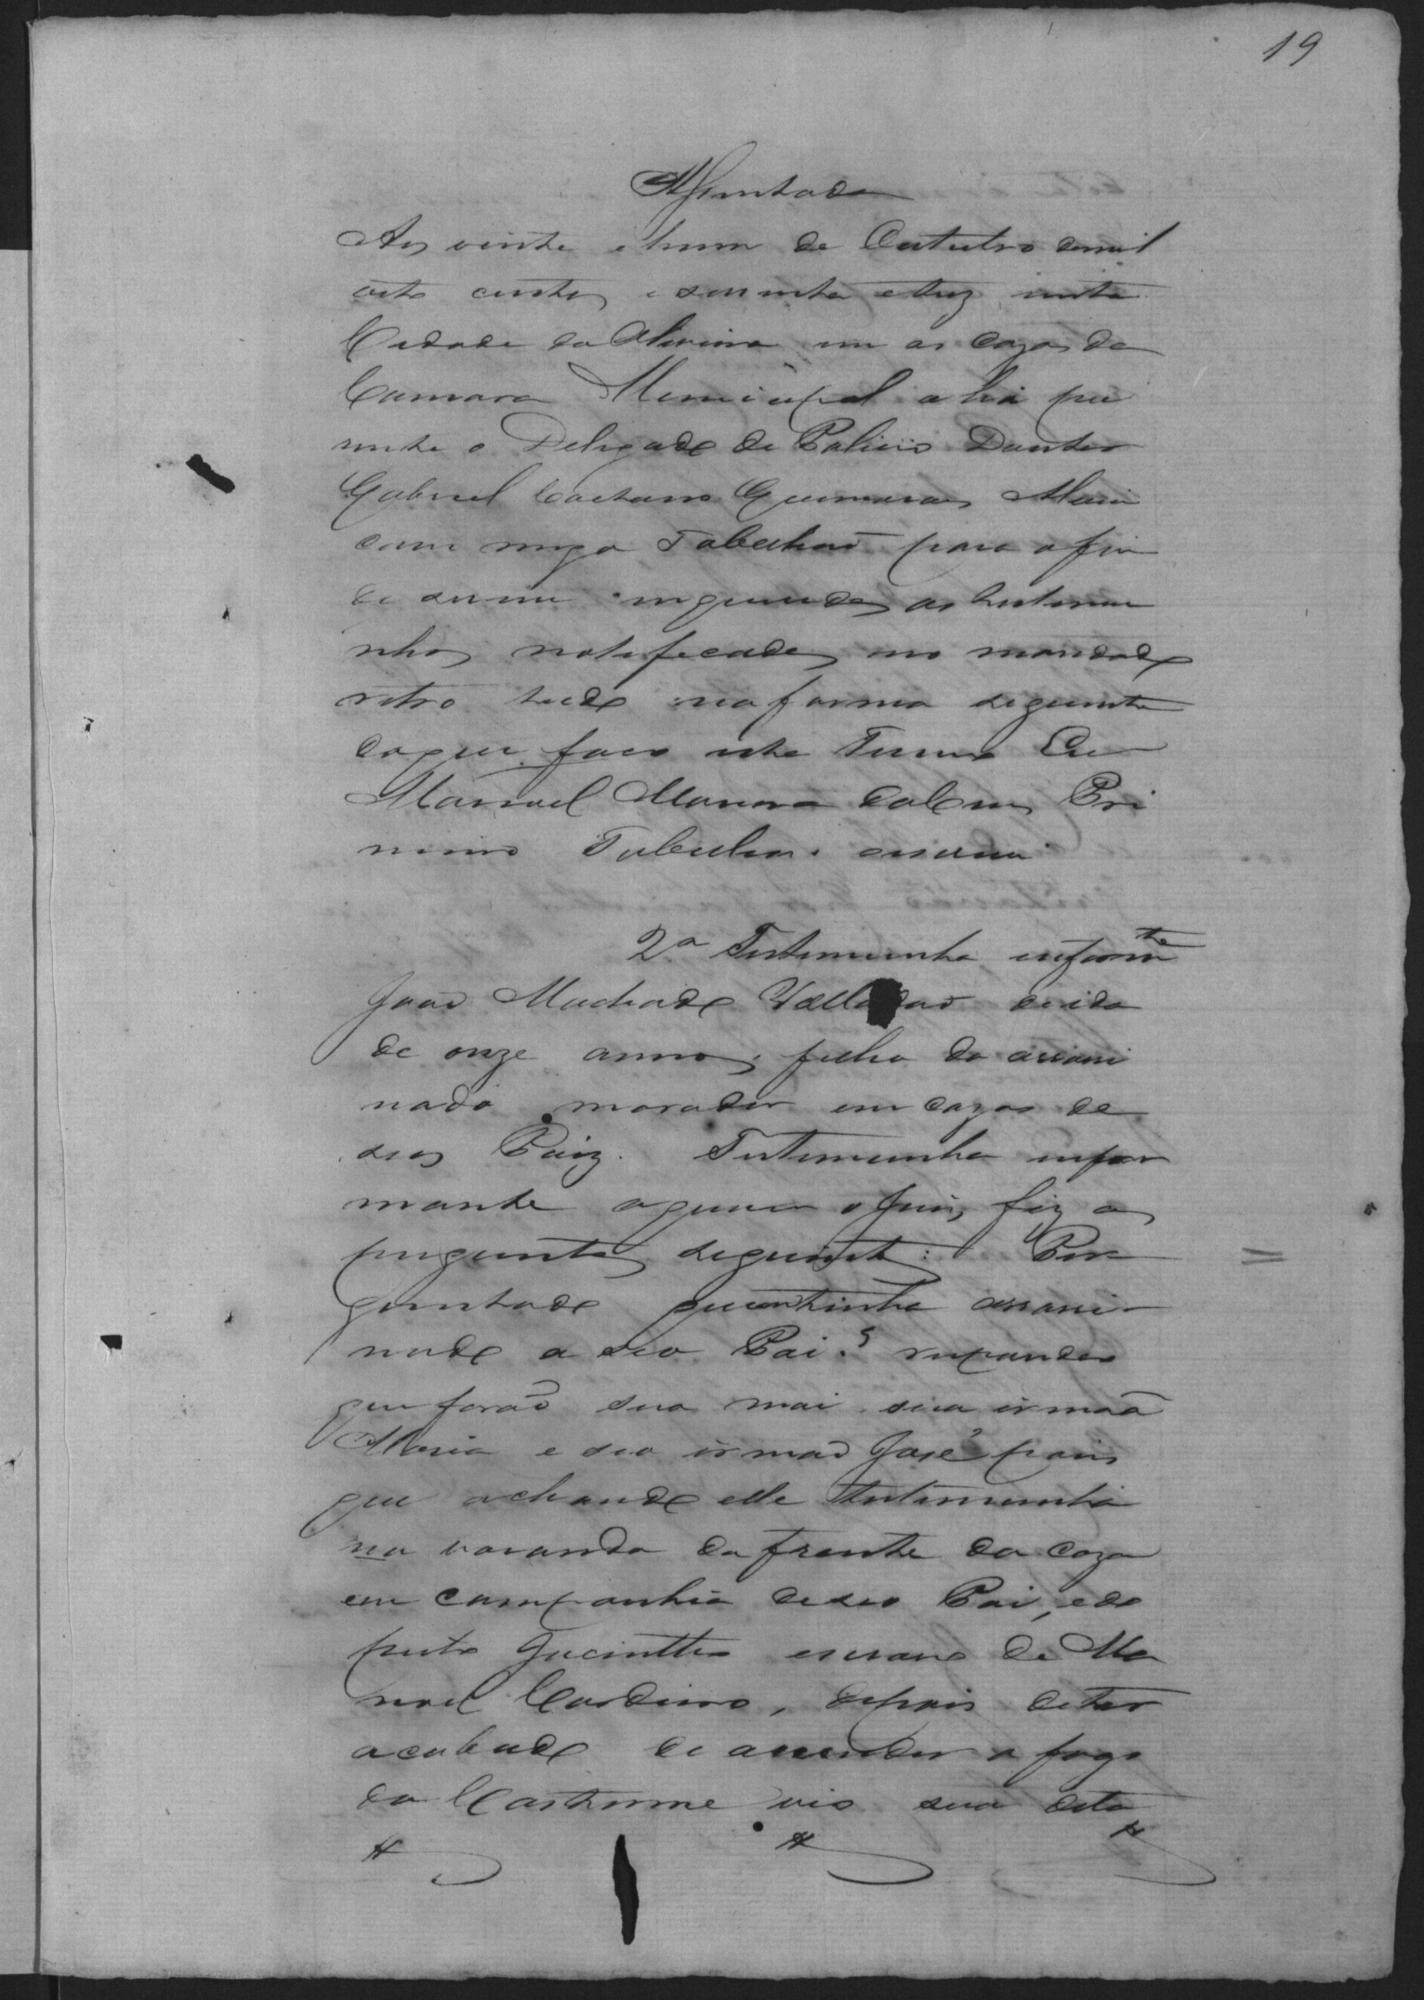 19
Assentada
Aos vinte e hum de Outubro de mil
oito centos e secenta e trez nesta
Cidade da Oliveira em as Cazas da
Camara Municipal ahi pre
zente o Delegado de Policia Doutor
Gabriel Caetano Guimarães
com migo Tabelião para o fim
de serem inqueridas as testemu
nhas notificadas no mandado
retro tudo na forma seguinte
do que faço este Termo Eu
Manoel
Tabelião escrevi
2ª Testemunha inform.te
João Machado Valladão de ida
de onze annos, filho do assaci
nado morador em cazas de
seos Paiz. Testemunha infor
mante a quem o Juis fez as
preguntas seguintes: Per
guntado quem tinha assaci
nado a seo Pai? respondeo
que forão sua mai sua irmãa
Maria e seo irmão José pois
que achando elle testemunha
na varanda da frente da caza
em companhia de seo Pai, e do
preto Jacinttho escravo de Ma
noel Cardozo, depois de ter
acabado de acender o fogo
da vio sua dita